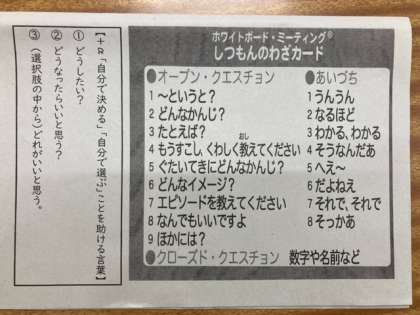 ホワイトボード・ミーティング®
しつもんのわざカード
●オープン・クエスチョン
1 〜というと?
2 どんなかんじ?
3 たとえば?
4 もうすこし、くわしく教えてください
おし
5 ぐたいてきにどんなかんじ?
6 どんなイメージ?
7 エピソードを教えてください
8 なんでもいいですよ
9 ほかには?
●あいづち
1 うんうん
2 なるほど
3 わかる、わかる
4 そうなんだあ
5 へえ〜
6 だよねえ
7 それで、それで
8 そっかあ
●クローズド・クエスチョン 数字や名前など
【+α「自分で決める」「自分で選ぶ」ことを助ける言葉】
① どうしたい?
② どうなったらいいと思う?
③ (選択肢の中から)どれがいいと思う。